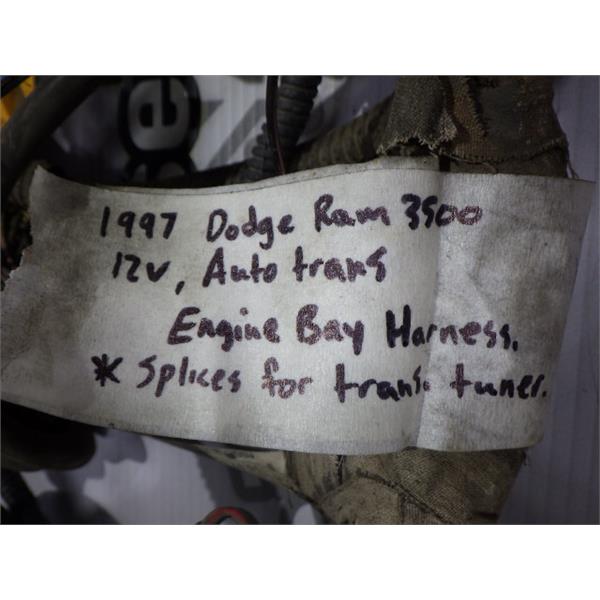 1997 Dodge Ram 3500
12v, Auto trans
Engine Bay Harness.
* Splices for trans. tuner.